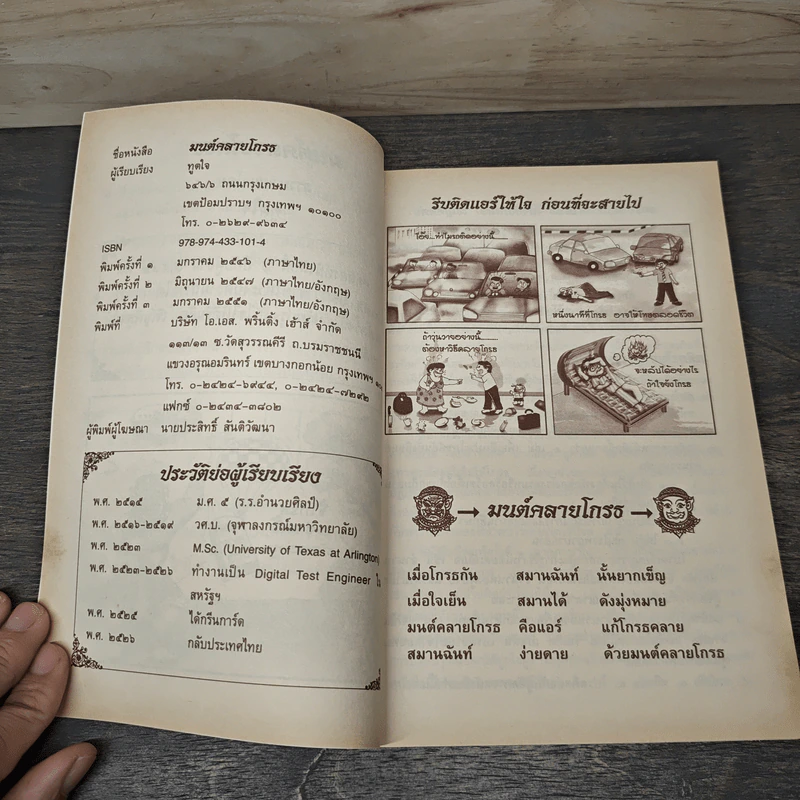 ชื่อหนังสือ มนต์คลายโกรธ
ผู้เรียบเรียง ทูตใจ
๖๔๖/๖ ถนนกรุงเกษม
เขตป้อมปราบฯ กรุงเทพฯ ๑๐๑๐๐
โทร. ๐-๒๖๒๙-๙๖๓๔
ISBN 978-974-433-101-4
พิมพ์ครั้งที่ ๑ มกราคม ๒๕๔๖ (ภาษาไทย)
พิมพ์ครั้งที่ ๒ มิถุนายน ๒๕๔๗ (ภาษาไทย/อังกฤษ)
พิมพ์ครั้งที่ ๓ มกราคม ๒๕๕๑ (ภาษาไทย/อังกฤษ)
พิมพ์ที่ บริษัท โอ.เอส. พริ้นติ้ง เฮ้าส์ จำกัด
๑๑๓/๑๓ ซ.วัดสุวรรณคีรี ถ.บรมราชชนนี
แขวงอรุณอมรินทร์ เขตบางกอกน้อย กรุงเทพฯ
โทร. ๐-๒๔๒๔-๖๙๔๔, ๐-๒๔๒๔-๗๒๙๒
แฟกซ์ ๐-๒๔๓๔-๓๘๐๒
ผู้พิมพ์ผู้โฆษณา นายประสิทธิ์ สันติวัฒนา
ประวัติย่อผู้เรียบเรียง
พ.ศ. ๒๕๑๕ ม.ศ. ๕ (ร.ร.อำนวยศิลป์)
พ.ศ. ๒๕๑๖-๒๕๑๙ วศ.บ. (จุฬาลงกรณ์มหาวิทยาลัย)
พ.ศ. ๒๕๒๓ M.Sc. (University of Texas at Arlington)
พ.ศ. ๒๕๒๓-๒๕๒๖ ทำงานเป็น Digital Test Engineer ใน
สหรัฐฯ
พ.ศ. ๒๕๒๕ ได้กรีนการ์ด
พ.ศ. ๒๕๒๖ กลับประเทศไทย
รีบติดแอร์ให้ใจ ก่อนที่จะสายไป
โอ๊ย...ทำไมรถติดอย่างนี้
หนึ่งนาทีที่โกรธ อาจให้โทษตลอดชีวิต
ถ้าวุ่นวายอย่างนี้
ต้องหาวิธีคลายโกรธ
จะหลับได้อย่างไร
ถ้าใจยังโกรธ
มนต์คลายโกรธ
เมื่อโกรธกัน สมานฉันท์ นั้นยากเข็ญ
เมื่อใจเย็น สมานได้ ดังมุ่งหมาย
มนต์คลายโกรธ คือแอร์ แก้โกรธคลาย
สมานฉันท์ ง่ายดาย ด้วยมนต์คลายโกรธ